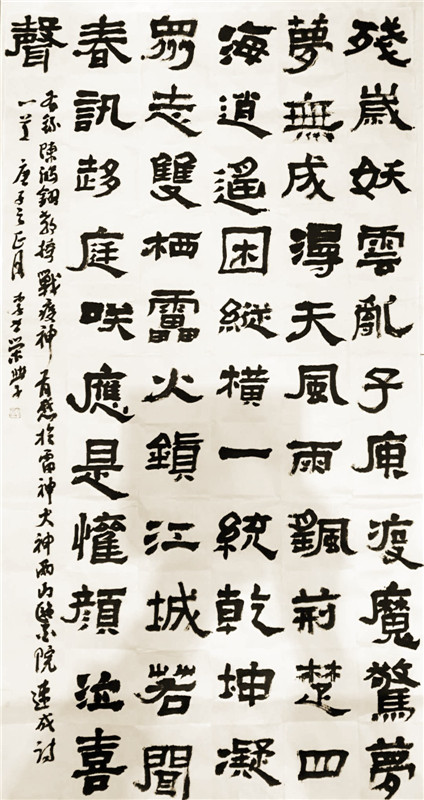 殘歲妖雲亂子庚疫魔驚夢
夢無成淂天風雨飄荊楚四
海逍遙困縱橫一統乾坤凝
眾志雙栖雷火鎮江城若聞
春訊趍庭咲應是懽顏泣喜
聲
右錄陳教授戰疫神有感於雷神火神兩山醫院速成詩
一首 庚子之正月 李